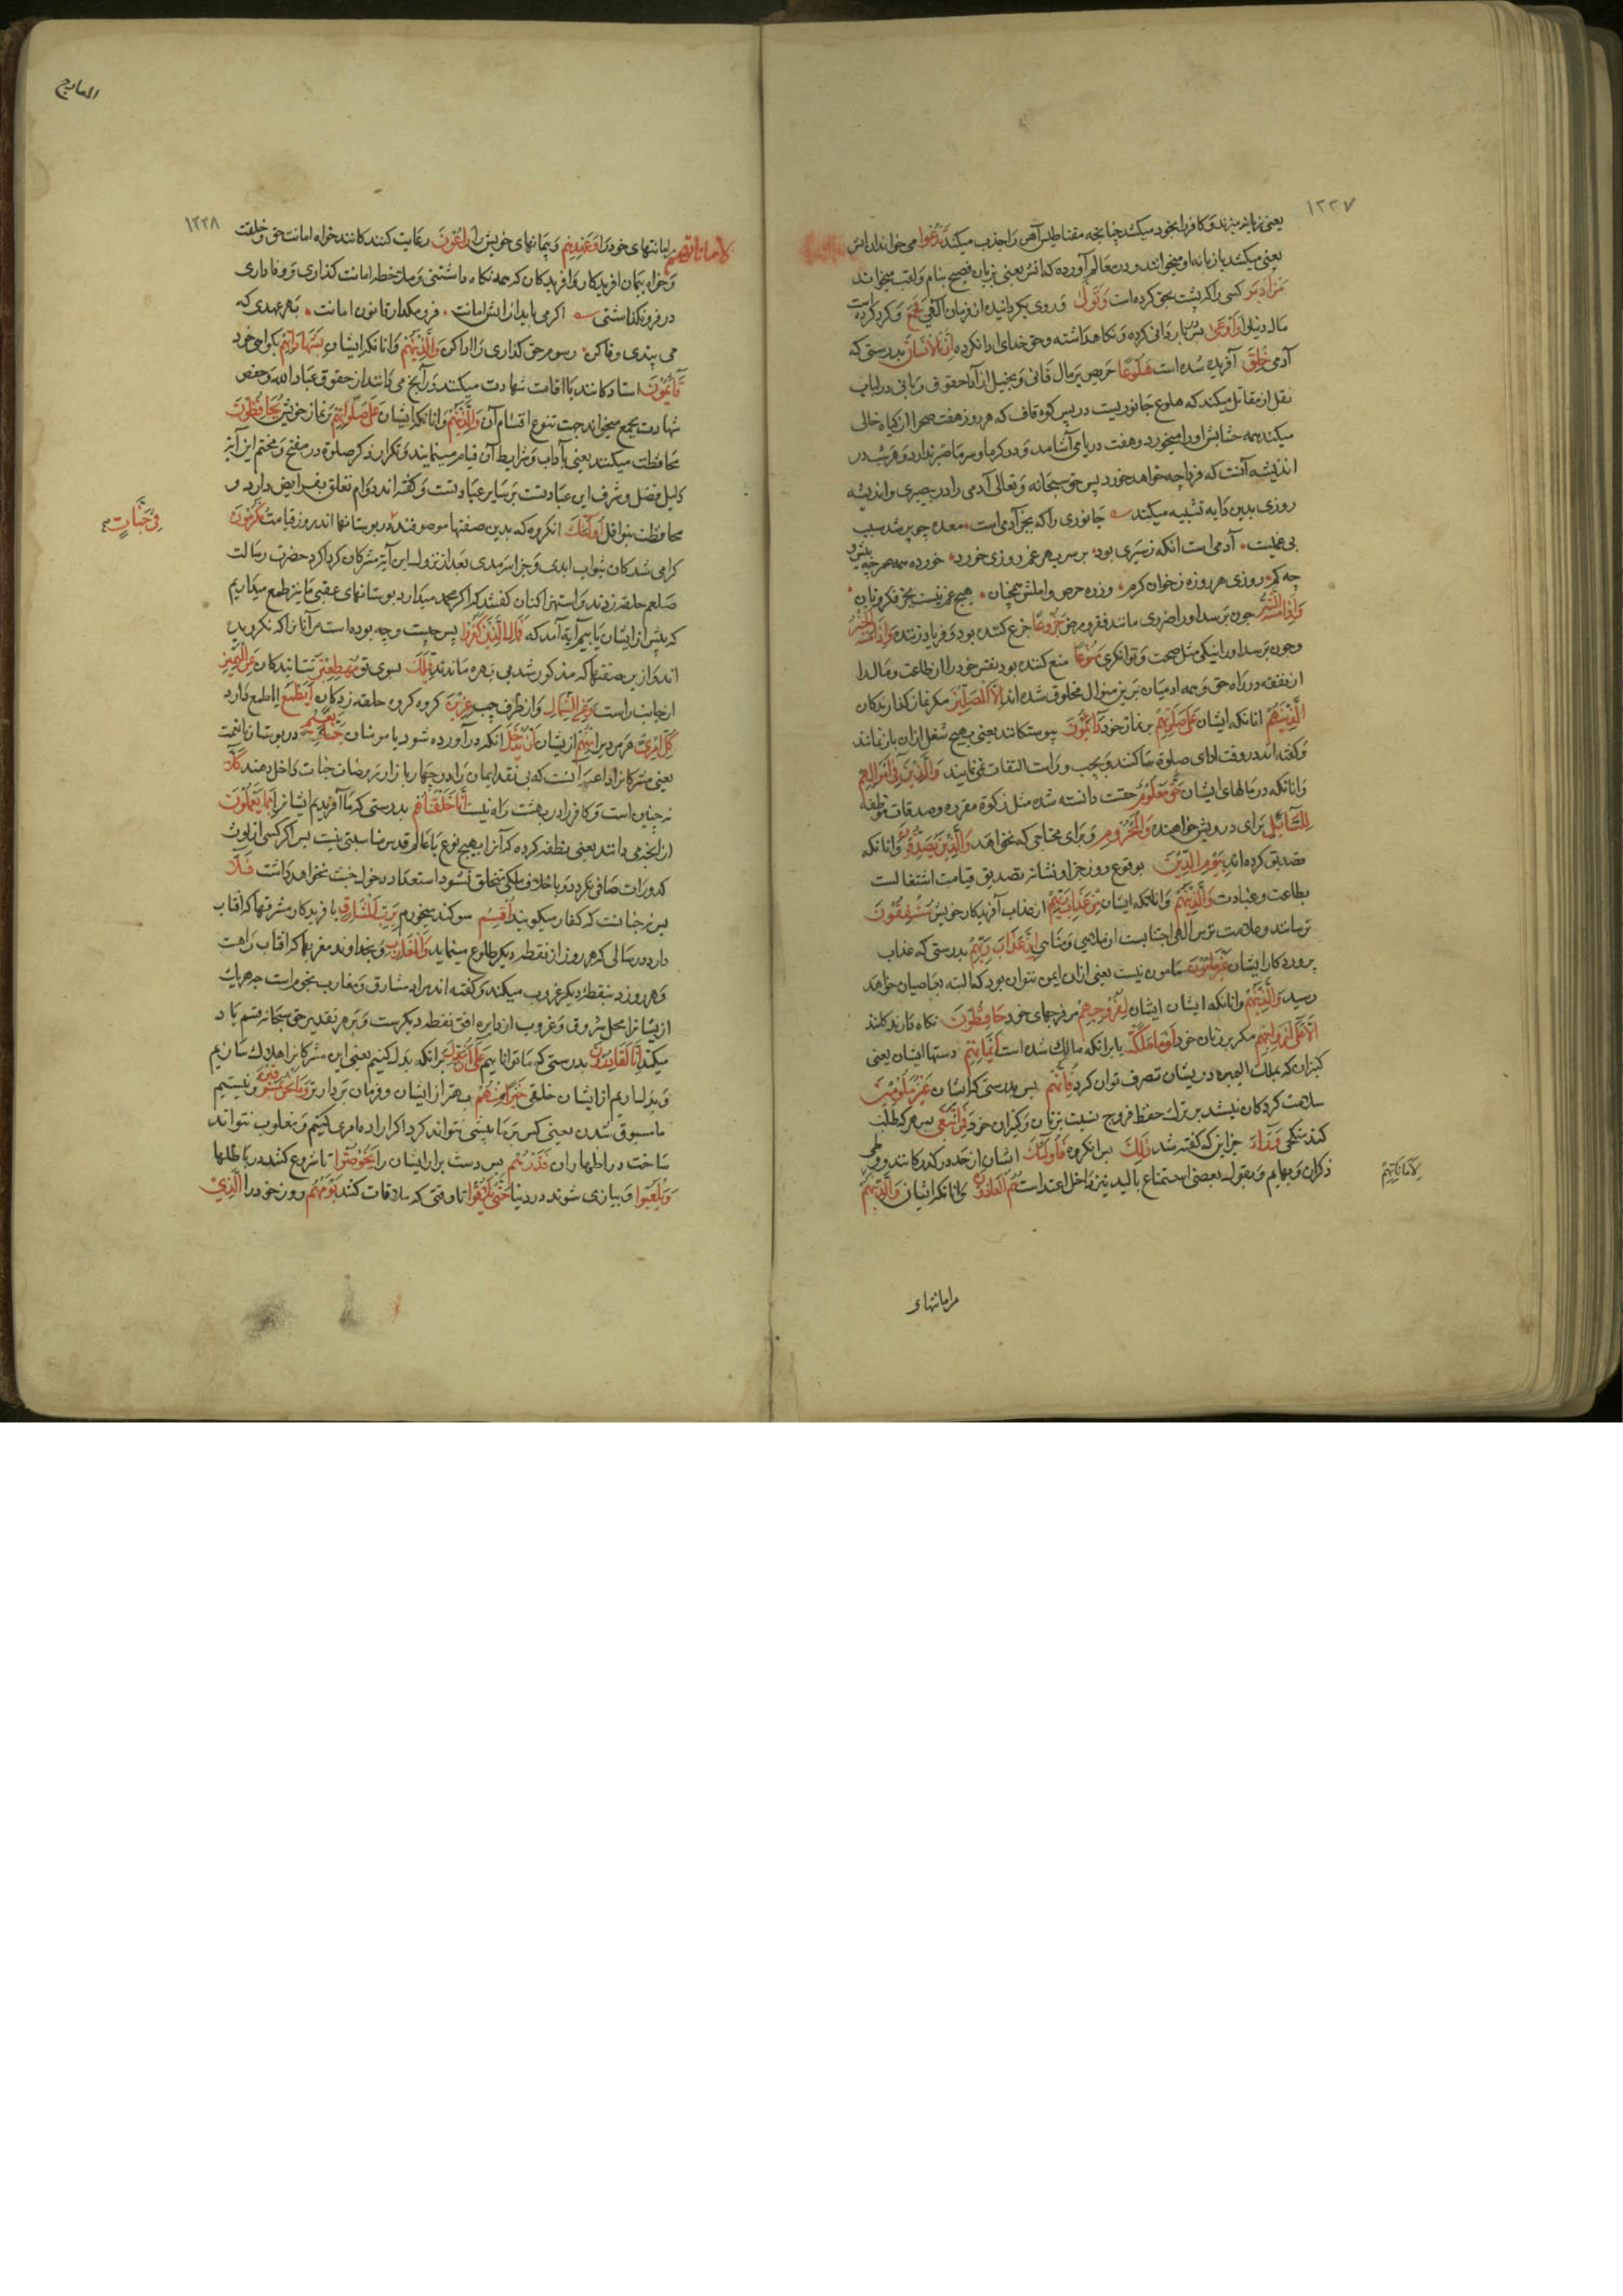 ١٢٢٧
یعنی زبانه میزند و کافر را بخود میکشد چنانچه مقناطیس آهن را جذب میکند تَدْعُوا می خواند
یعنی میکشد یا زبانه او میخواند و در معالم آورده که آتش یعنی بزبان فصیح بنام و لقب میخواند
مَنْ اَدْبَرَ کسی را که پشت بحق کرده است وَتَوَلّٰی و روی بگردانیده از فرمان الٰهی وَجَمَعَ و گرد کرده است
مال دنیا را فَاَوْعٰی پس کرده و نگاهداشته و حق خدای ادا نکرده اِنَّ الْاِنْسَانَ بدرستی که
آدمی خُلِقَ آفریده شده است هَلُوعًا حریص بر مال فانی و بخیل از ادا حقوق ربانی در لباب
نقل از مقاتل میکند که هلوع جانوریست در پس کوه قاف که هر روز هفت صحرا از کیاه خالی
میکند همه حشایش او را میخورد و هفت دریا می آشامد و در کرما و سرما صبر ندارد و هر شب در
اندیشه آنست که فردا چه خواهد خورد پس حق سبحانه و تعالی آدمی را در بیصبری و اندیشه
روزی بدین دابه تشبیه میکند جانوری را که بجز آدمی است معده چو پر شد سبب
بی غمیست آدمی است انکه ز سیری بود بر سر سیری غم روزی خورد خورده همه عمر چه بیش و
چه کم روزی هر روزه ز خوان کرم وز ره حرص و املش همچنان هیچ غمی نیست بجز فکر نان
وَاِذَا مَسَّهُ الشَّرُّ چون برسد او را ضرری مانند فقر و مرض جَزُوعًا جزع کننده بود و فریاد زننده وَاِذَا مَسَّهُ الْخَیْرُ
و چون برسد او را نیکی مثل صحت و توانکری مَنُوعًا منع کننده بود نفس خود را از طاعت و مال را
از نفقه در راه حق و همه ادمیان برین منوال مخلوق شده اند اِلَّا الْمُصَلِّینَ مکر نماز کذارندکان
الَّذِینَ هُمْ انانکه ایشان عَلٰی صَلٰوتِهِمْ بر نماز خود دَائِمُونَ پیوستکانند یعنی بهیچ شغل ازان باز نمانند
و کفته اند در وقت ادای صلوة ساکنند و بچپ و راست التفات نمی نمایند وَالَّذِینَ فِی اَمْوَالِهِمْ
و انانکه در مالهای ایشان حَقٌّ مَعْلُومٌ حقیست دانسته شده مثل زکوة مقرره و صدقات موظفه
لِلسَّائِلِ برای درویش خواهنده وَالْمَحْرُومِ و برای محتاجی که نخواهد وَالَّذِینَ یُصَدِّقُونَ و انانکه
تصدیق کرده اند بِیَوْمِ الدِّینِ بوقوع روز جزا و نشانه تصدیق قیامت اشتغالست
بطاعت و عبادت وَالَّذِینَ هُمْ و انانکه ایشان مِنْ عَذَابِ رَبِّهِمْ از عذاب آفریدکار خویش مُشْفِقُونَ
ترسانند و علامت ترس الٰهی اجتنابست از ملاهی و مناهی اِنَّ عَذَابَ رَبِّهِمْ بدرستی که عذاب
پروردکار ایشان غَیْرُ مَاْمُونٍ مامون نیست یعنی ازان ایمن نتوان بود که البته بعاصیان خواهد
رسید وَالَّذِینَ هُمْ و انانکه ایشان لِفُرُوجِهِمْ مر فرجهای خود حَافِظُونَ نکاه دارندکانند
اِلَّا عَلٰی اَزْوَاجِهِمْ مکر بر زنان خود اَوْ مَا مَلَکَتْ یا برانکه مالک شده است اَیْمَانُهُمْ دستها ایشان یعنی
کنیزان که بملک الیمین در ایشان تصرف توان کرد فَاِنَّهُمْ پس بدرستی که ایشان غَیْرُ مَلُومِینَ
ملامت کردکان نیستند بر ترک حفظ فروج نسبت بزنان و کنیزان خود فَمَنِ ابْتَغٰی پس هر که طلب
کند وَرَاءَ جز این که کفته شد ذٰلِکَ پس انکروه فَاُولٰئِکَ ایشان از حد درکذرکانند و وطی
ذکران و بهایم و بقول بعضی استمتاع بالید نیز داخل اعتداست هُمُ الْعَادُونَ وانانکه ایشان وَالَّذِینَ هُمْ
لِاَمَانَاتِهِمْ
مر امانتهاء
المعارج
١٢٢٨
لِاَمَانَاتِهِمْ مر امانتهای خود را وَعَهْدِهِمْ و پیمانهای خویش را رَاعُونَ رعایت کنندکانند خواه امانت حق و خلقت
و خواه پیمان افریدکار و افریدکان که همه نکاه داشتنی و ملاحظه امانت کذاری و وفاداری
در فرو نکذاشتنی اکر می بایدت ارایش امانت فرو مکذار قانون امانت بهر عهدی که
می بندی وفا کن رسوم حق کذاری را ادا کن وَالَّذِینَ هُمْ و انانکه ایشان بِشَهَادَاتِهِمْ بکواهی خود
قَائِمُونَ استادکانند با اقامت شهادت میکنند در آنچ می دانند از حقوق عباد الله و حفص
شهادت بجمع میخواند جهت تنوع اقسام آن وَالَّذِینَ هُمْ و انانکه ایشان عَلٰی صَلٰوتِهِمْ بر نماز خویش یُحَافِظُونَ
محافظت میکنند یعنی بآداب و شرایط آن قیام مینمایند و تکرار ذکر صلوة در مفتح و مختم این آیة
دلیل فضل و شرف این عبادتست بر سایر عبادات و کفته اند دوام تعلق بفرایض دارد و
محافظت بنوافل اُولٰئِکَ انکروه که بدین صفتها موصوفند در بوستانها اند روز قیامت مُکْرَمُونَ
فِی جَنَّاتٍ
کرامی شدکان بثواب ابدی و جزا سرمدی بعد از نزول این آیة مشرکان کرداکرد حضرت رسالت
صلعم حلقه زدند و استهزا کنان کفتند که اکر محمد میکذارد بوستانهای عقبی ما نیز طمع میداریم
که پیش از ایشان یابیم آیة آمد که فَمَالِ الَّذِینَ کَفَرُوا پس چیست و چه بوده است مر آنانرا که نکرویده
اند و ازین صفتها که مذکور شد بی بهره مانده اند قِبَلَکَ بسوی تو مُهْطِعِینَ شتابندکان عَنِ الْیَمِینِ
از جانب راست وَعَنِ الشِّمَالِ و از طرف چپ عِزِینَ کروه کروه حلقه زدکان اَیَطْمَعُ ایا طمع دارد
کُلُّ امْرِئٍ هر مردی مِنْهُمْ از ایشان اَنْ یُدْخَلَ انکه درآورده شود با مومنان جَنَّةَ نَعِیمٍ در بوستان با نعمت
یعنی مشرکانرا داعیه آنست که بی نقد ایمان در روضات جنات داخل دهند کَلَّا
نه چنین است و کافر را در بهشت راه نیست اِنَّا خَلَقْنَاهُمْ بدرستی که ما آفریدیم ایشانرا مِمَّا یَعْلَمُونَ
ازانچه می دانند یعنی نطفه کرده که آنرا بهیچ نوع با عالم قدس مناسبتی نیست پس اکر کسی از لوث
کدورات صافی نکردد و باخلاق ملکی متخلق نشود استعداد دخول جنت نخواهد داشت فَلَا
پس نه چنانست که کفار میکویند اُقْسِمُ سوکند میخورم بِرَبِّ الْمَشَارِقِ بافریدکار مشرقها که افتاب
دارد در سالی که هر روز از نقطه دیکر طلوع مینماید وَالْمَغَارِبِ و بخداوند مغربها که افتاب راهست
و هر روز در نقطه دیکر غروب میکند و کفته اند مراد مشارق و مغارب نجوم است چه هر یک
از یشانرا محل شروق و غروب از دایره افق نقطه دیکرست و بر هر تقدیر حق سبحانه قسم یاد
میکند اِنَّا لَقَادِرُونَ بدرستی که ما تواناییم عَلٰی اَنْ نُبَدِّلَ برانکه بدل کنیم یعنی این مشرکانرا هلاک سازیم
و بدل اریم از ایشان خلقی خَیْرًا مِنْهُمْ بهتر از ایشان و فرمان بردارتر وَمَا نَحْنُ بِمَسْبُوقِینَ و نیستیم
ما مسبوق شدن یعنی کس بر ما پیشی نتواند کرد اکر اراده امری کنیم و مغلوب نتواند
ساخت در اظهار ان فَذَرْهُمْ پس دست بدار ایشان را یَخُوضُوا تا شروع کنند در باطلها
وَیَلْعَبُوا و ببازی شوند در دنیا حَتّٰی یُلَاقُوا تا وقتی که ملاقات کنند یَوْمَهُمُ روز خود را الَّذِی